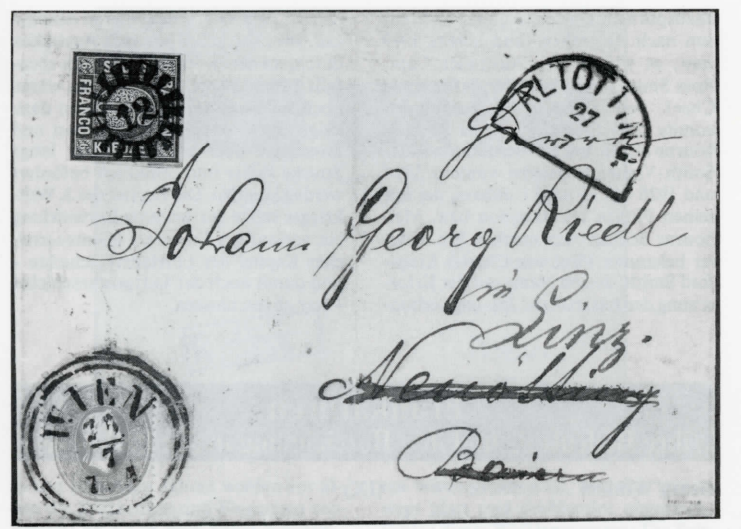 FRANCO
12
ALTOTTING.
27
Johann Georg Riedl
in
Linz.
Neuötting
Baiern
WIEN
7